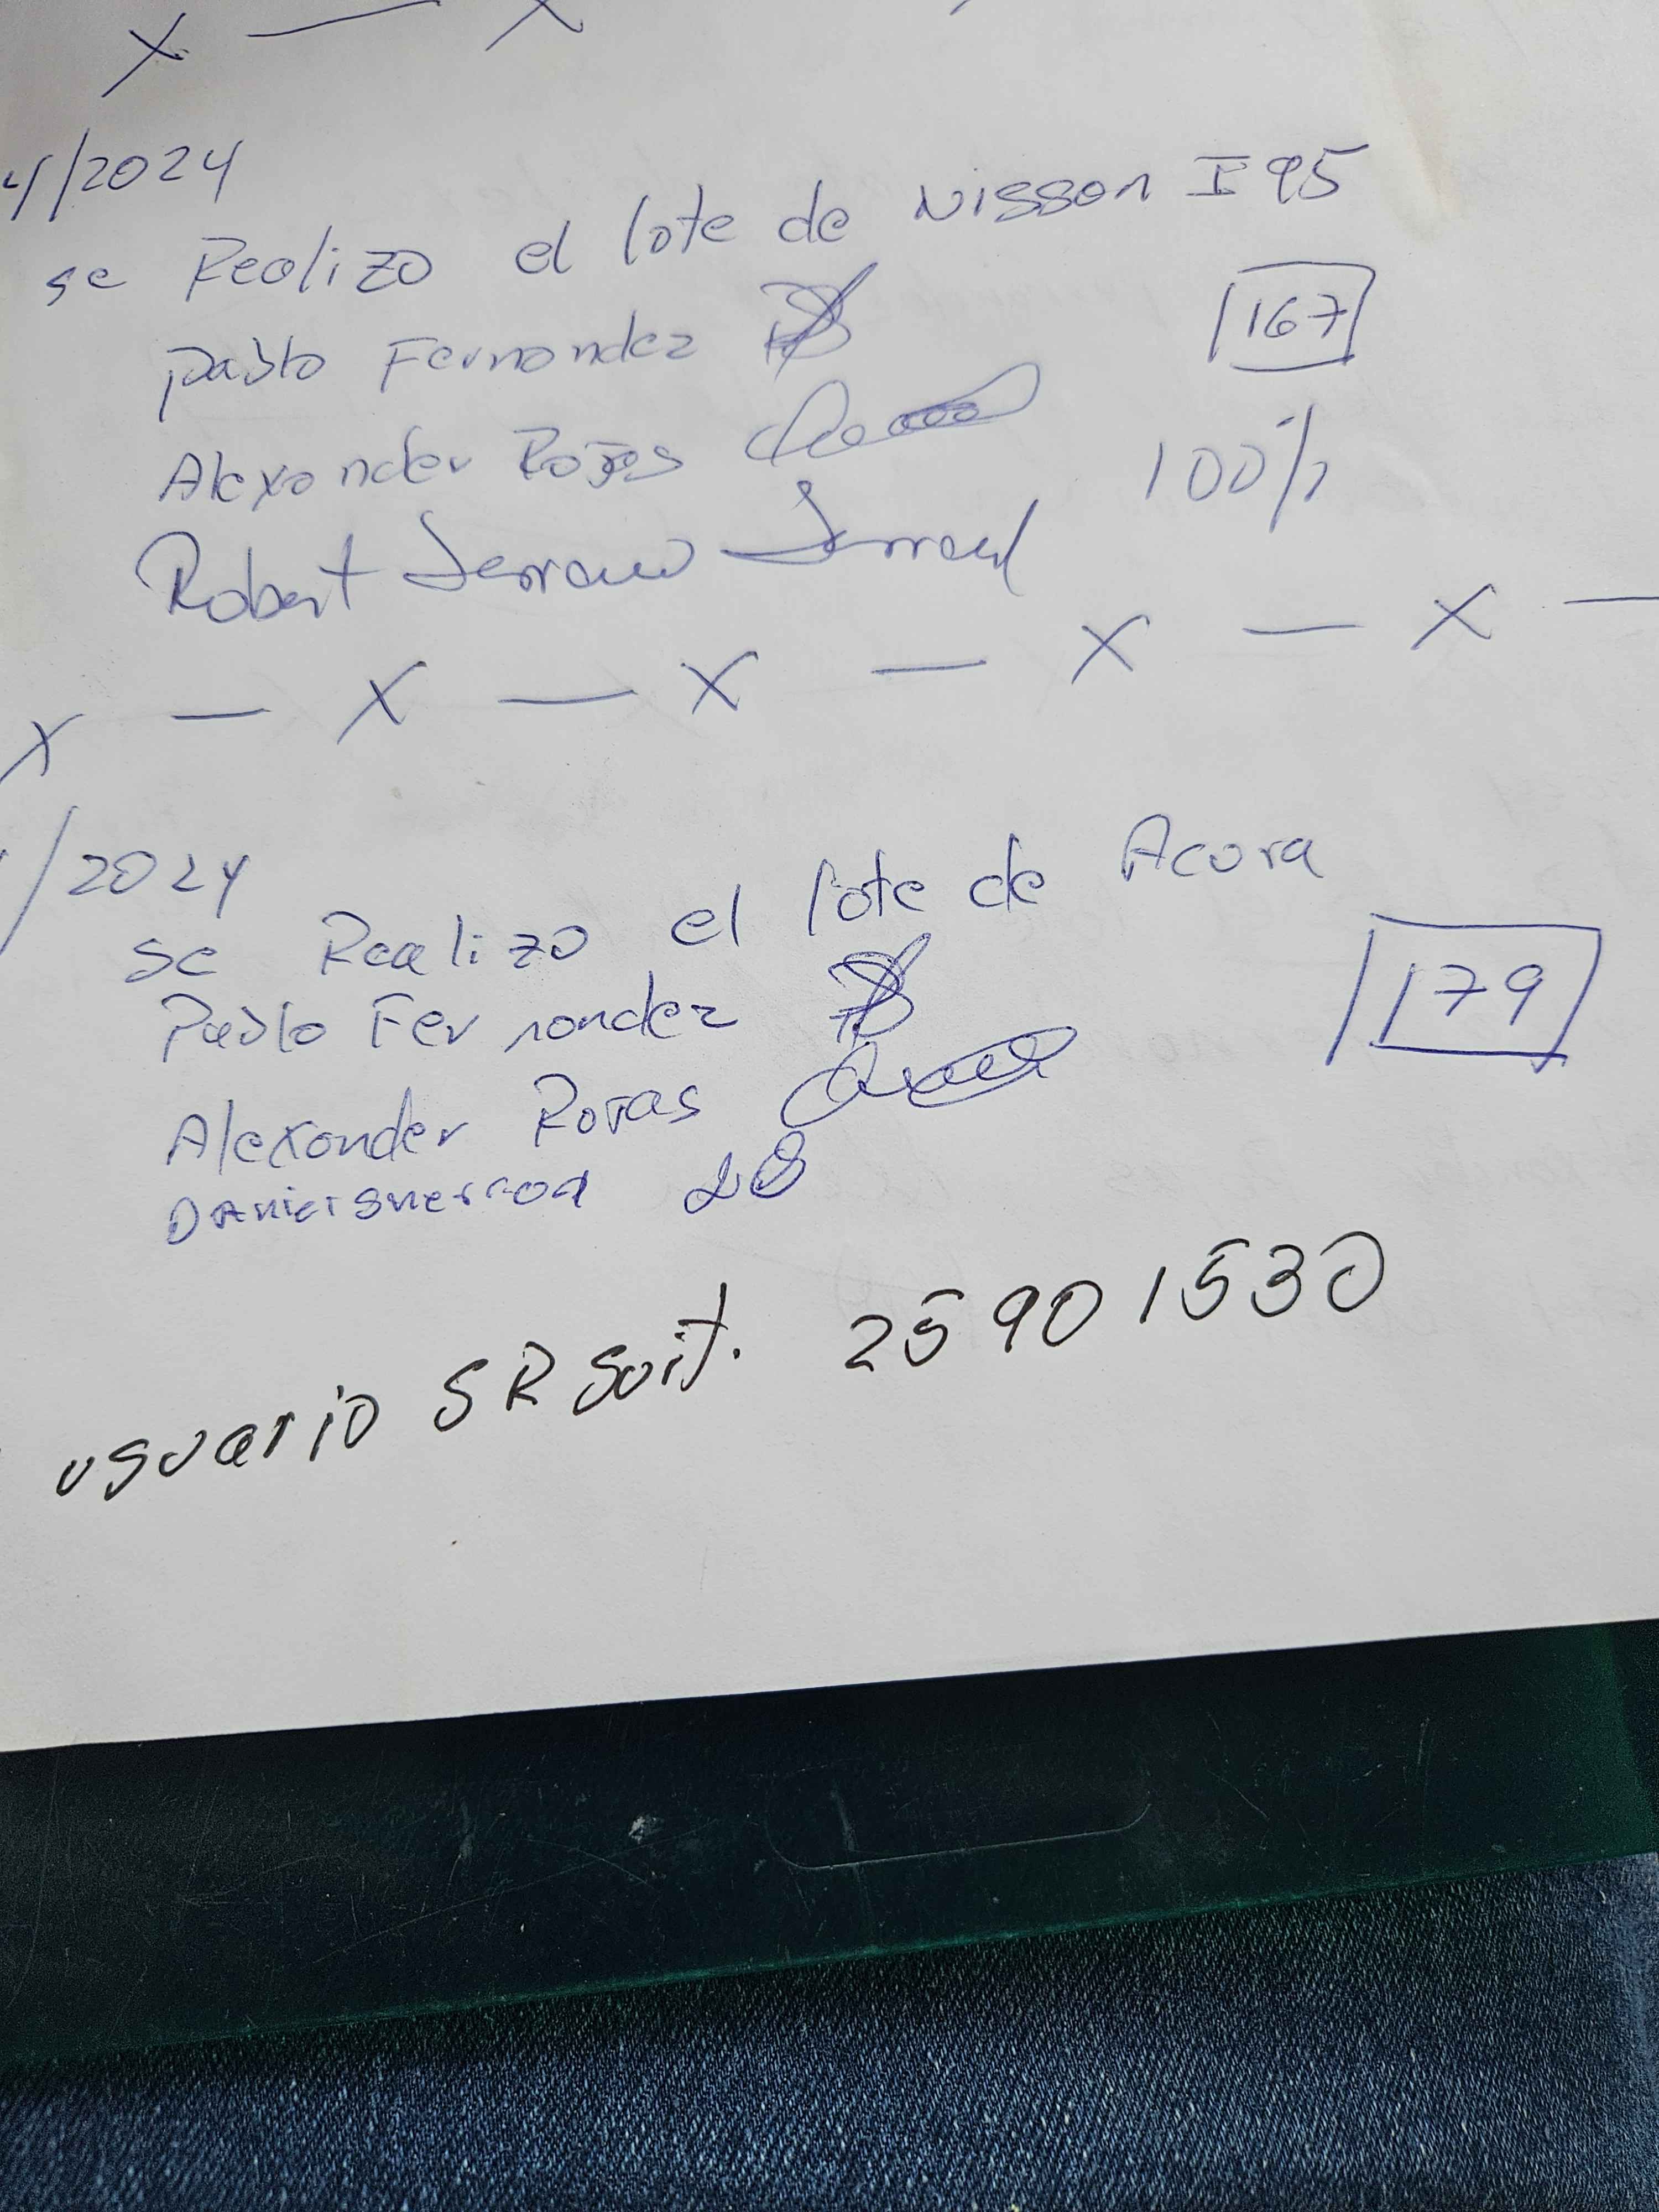 x — x
4/2024
se Realizo el lote de Nisson I 95
Pablo Fernondez
167
Alexonder Rojas
100%
Robert Serrano
x — x — x — x — x —
/2024
se Realizo el lote de Acora
Pablo Fernondez
179
Alexonder Rojas
usuario SR Suit. 25901530